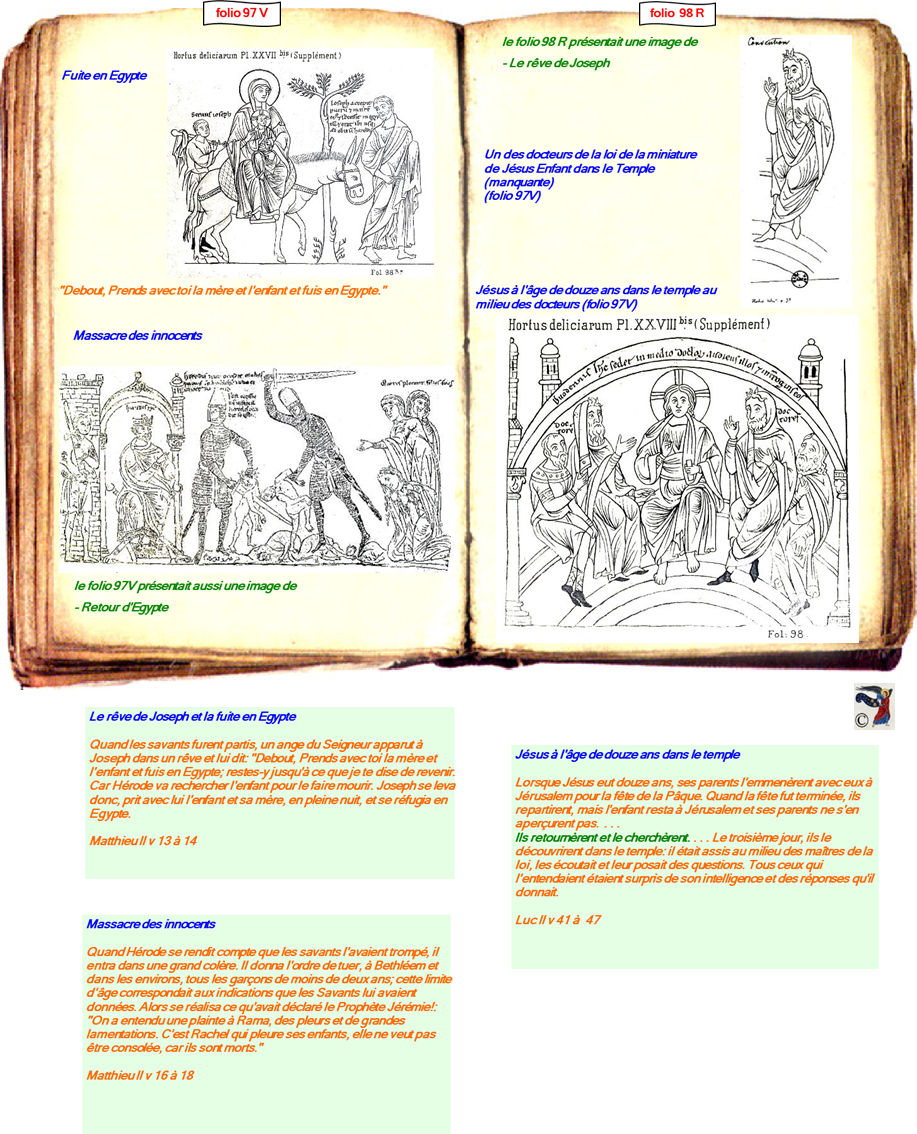 folio 97 V
Fuite en Egypte
Hortus deliciarum Pl. XXVII bis (Supplément)
Fol. 98
"Debout, Prends avec toi la mère et l'enfant et fuis en Egypte."
Massacre des innocents
le folio 97V présentait aussi une image de
- Retour d'Egypte
folio 98 R
le folio 98 R présentait une image de
- Le rêve de Joseph
Un des docteurs de la loi de la miniature
de Jésus Enfant dans le Temple
(manquante)
(folio 97V)
Jésus à l'âge de douze ans dans le temple au
milieu des docteurs (folio 97V)
Hortus deliciarum Pl. XXVIII bis (Supplément)
doc
tores
doc
tores
Fol: 98
©
Le rêve de Joseph et la fuite en Egypte
Quand les savants furent partis, un ange du Seigneur apparut à
Joseph dans un rêve et lui dit: "Debout, Prends avec toi la mère et
l'enfant et fuis en Egypte; restes-y jusqu'à ce que je te dise de revenir.
Car Hérode va rechercher l'enfant pour le faire mourir. Joseph se leva
donc, prit avec lui l'enfant et sa mère, en pleine nuit, et se réfugia en
Egypte.
Matthieu II v 13 à 14
Massacre des innocents
Quand Hérode se rendit compte que les savants l'avaient trompé, il
entra dans une grand colère. Il donna l'ordre de tuer, à Bethléem et
dans les environs, tous les garçons de moins de deux ans; cette limite
d'âge correspondait aux indications que les Savants lui avaient
données. Alors se réalisa ce qu'avait déclaré le Prophète Jérémie!:
"On a entendu une plainte à Rama, des pleurs et de grandes
lamentations. C'est Rachel qui pleure ses enfants, elle ne veut pas
être consolée, car ils sont morts."
Matthieu II v 16 à 18
Jésus à l'âge de douze ans dans le temple
Lorsque Jésus eut douze ans, ses parents l'emmenèrent avec eux à
Jérusalem pour la fête de la Pâque. Quand la fête fut terminée, ils
repartirent, mais l'enfant resta à Jérusalem et ses parents ne s'en
aperçurent pas. . . .
Ils retournèrent et le cherchèrent. . . . Le troisième jour, ils le
découvrirent dans le temple: il était assis au milieu des maîtres de la
loi, les écoutait et leur posait des questions. Tous ceux qui
l'entendaient étaient surpris de son intelligence et des réponses qu'il
donnait.
Luc II v 41 à 47